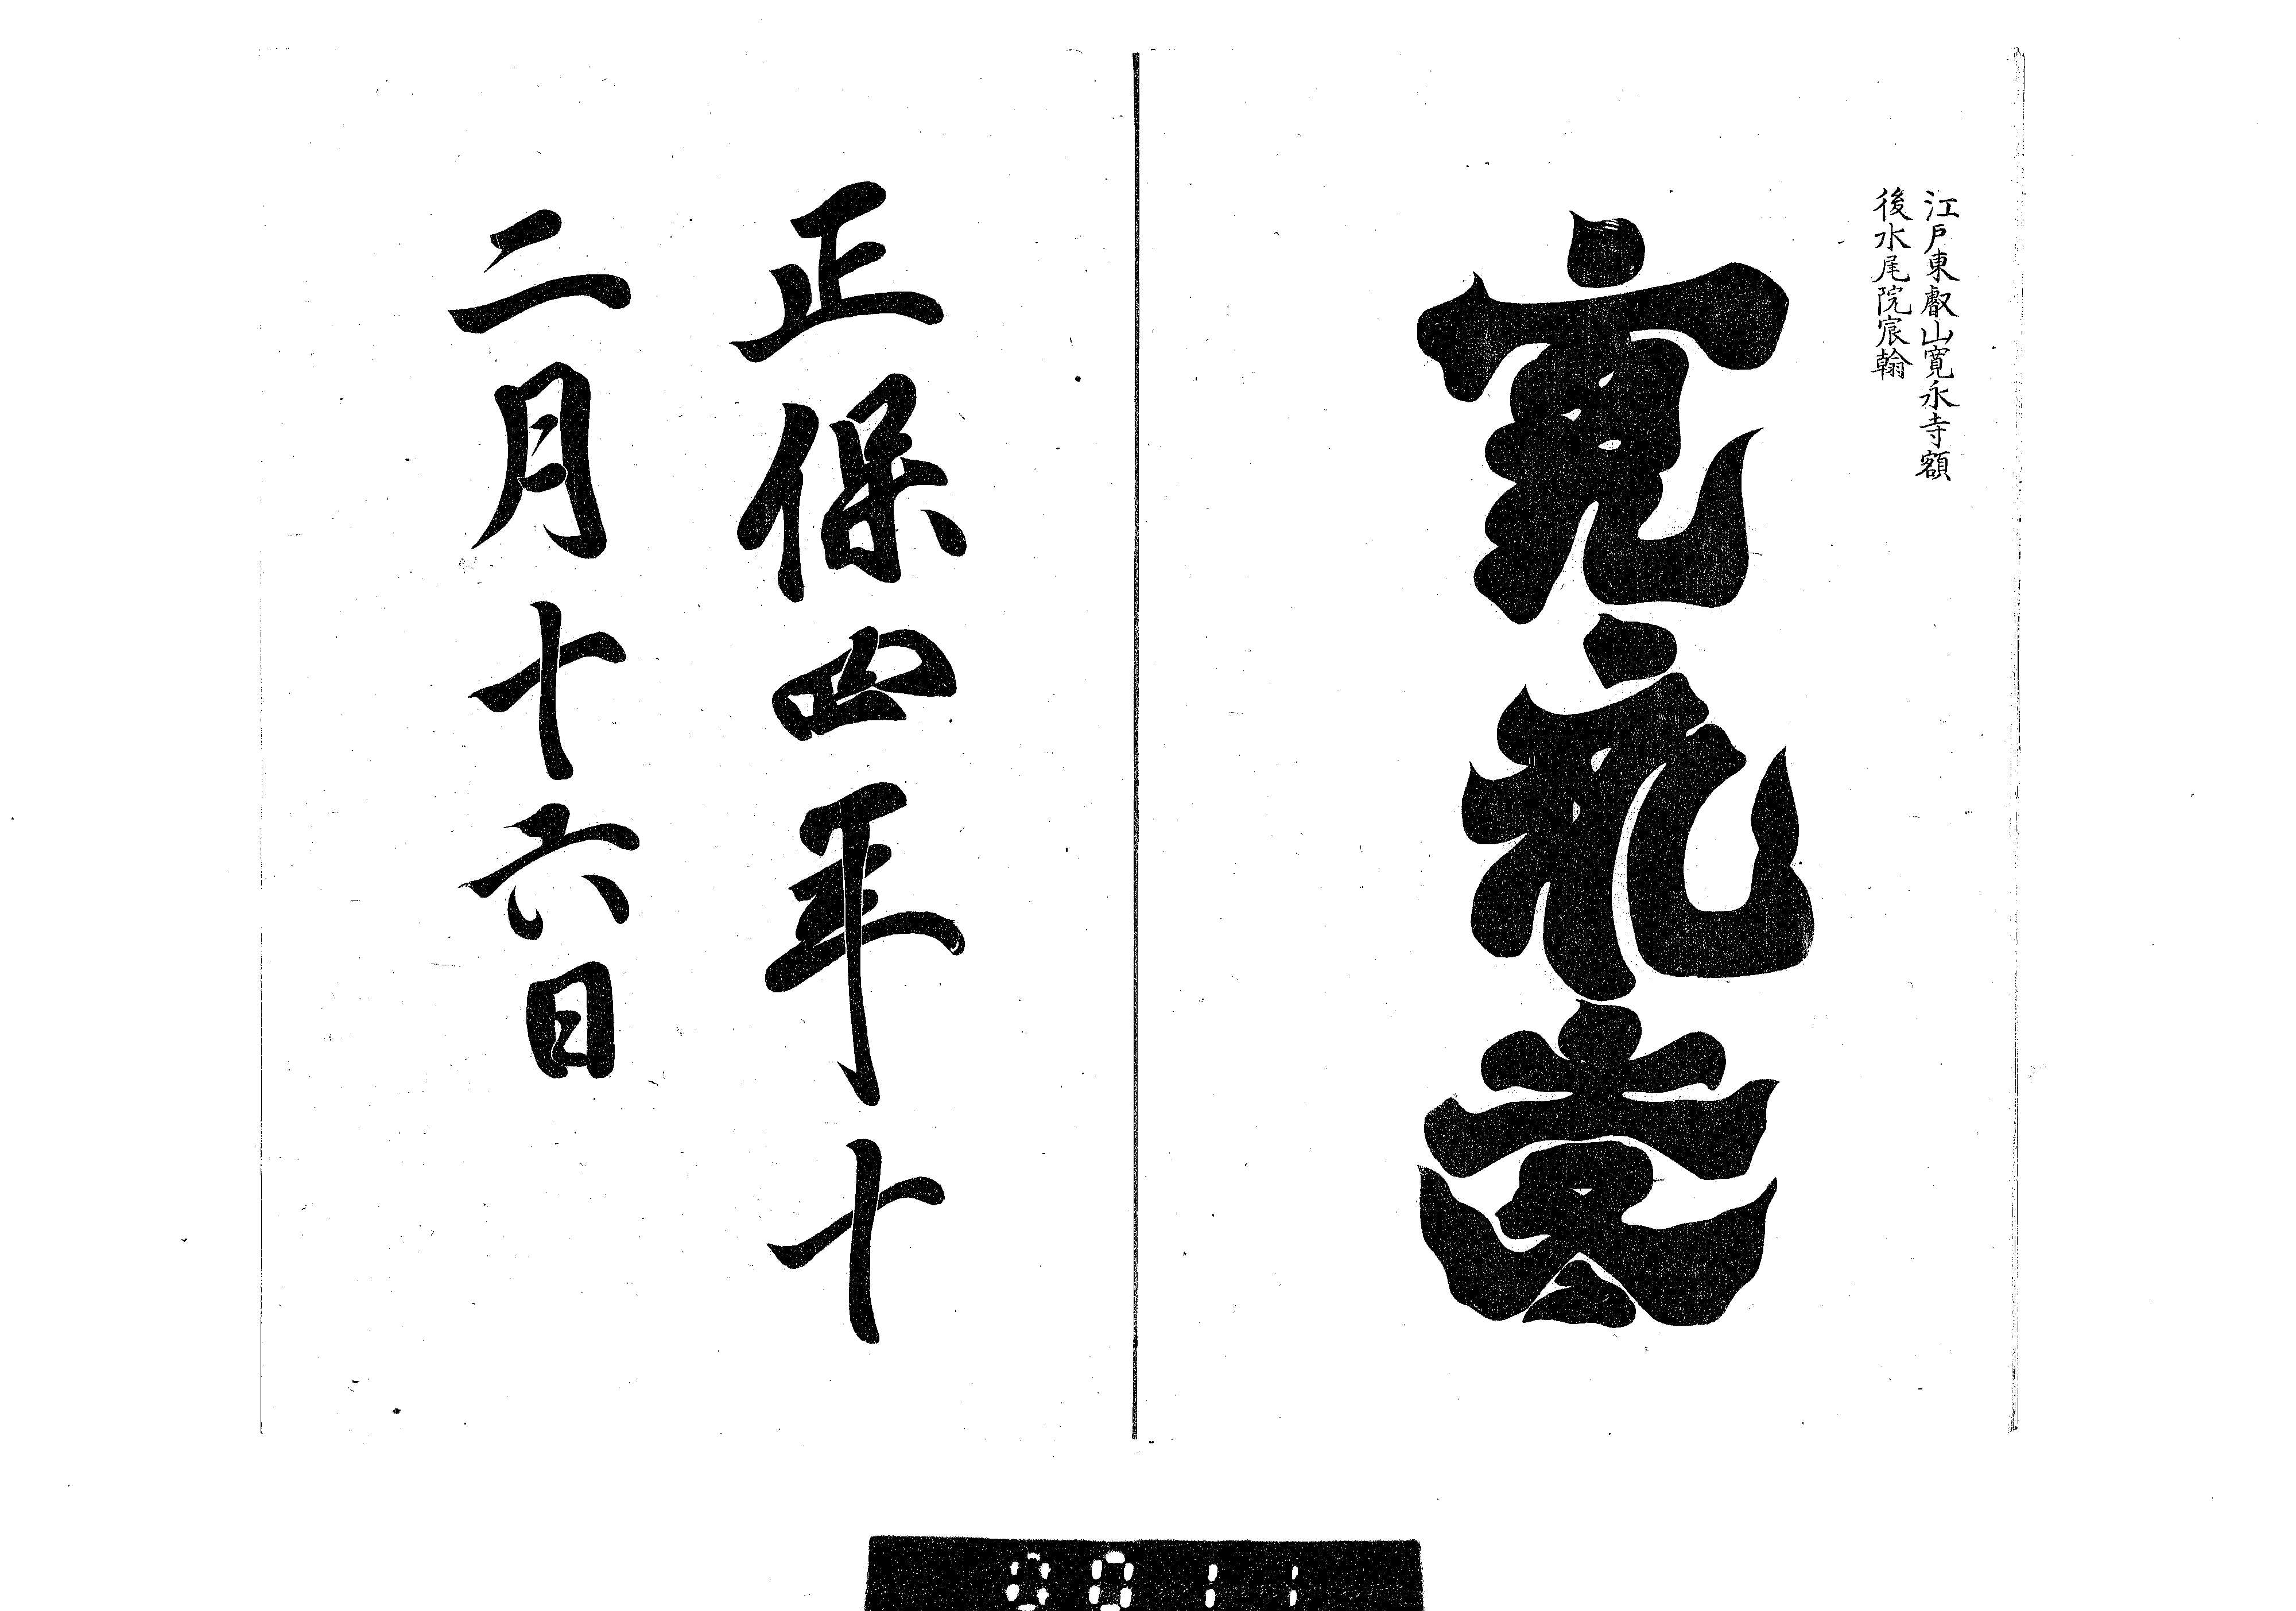 江戸東叡山寛永寺額
後水尾院宸翰
寛永寺
正保四年十
二月十六日
0011